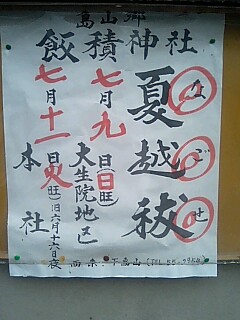 島山郷
飯積神社
夏越祓
なごせ
七月九日(日旺)
大生院地区
七月十一日(火旺)旧六月十六日夜
本社
西条・下島山(TEL55-